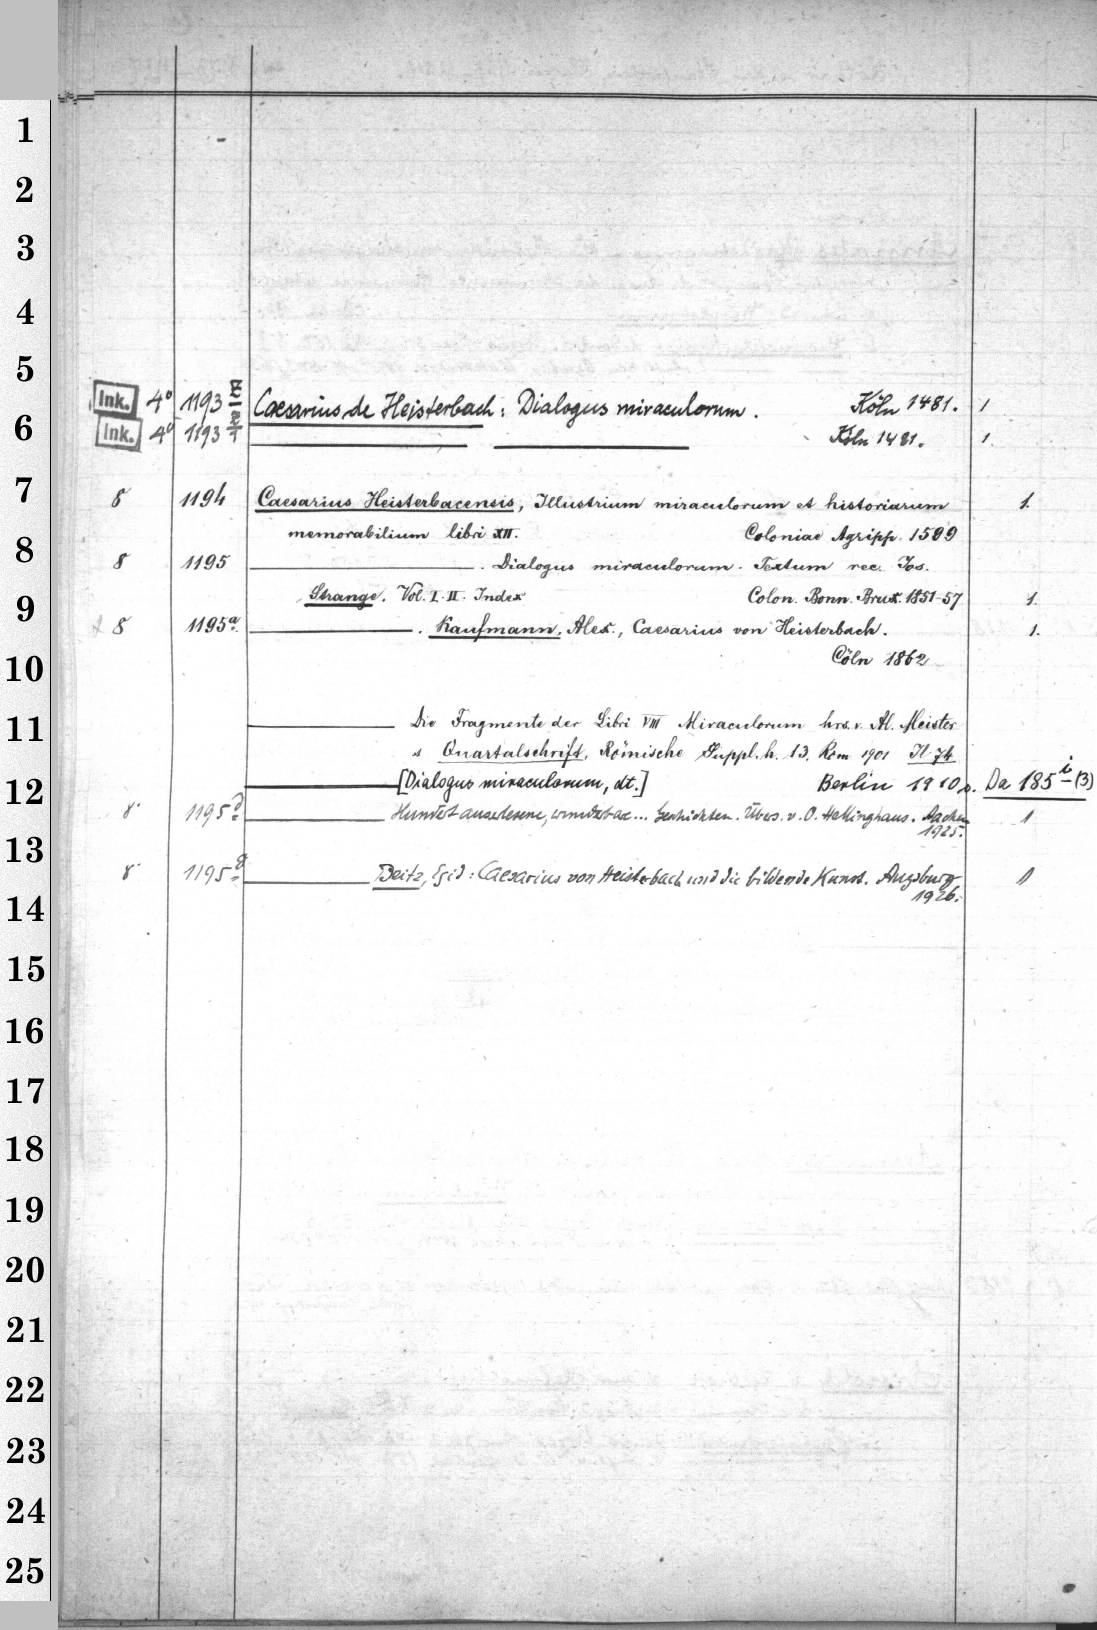 1
2
3
4
5
Ink. 4° 1193 Caesarius de Heisterbach: Dialogus miraculorum. Köln 1481. 1
6
Ink. 4° 1193 Köln 1481. 1.
7
8 1194 Caesarius Heisterbacensis, Illustrium miraculorum et historiarum 1.
memorabilium libri XII. Coloniae Agripp. 1599
8
8 1195 . Dialogus miraculorum. Textum rec. Jos.
Strange. Vol. I. II. Index Colon. Bonn. Brux. 1851-57 1.
9
8 1195a. . Kaufmann, Alex., Caesarius von Heisterbach. 1.
Cöln 1862
10
11
Die Fragmente der Libri VIII Miraculorum hrs. v. Al. Meister
s Quartalschrift, Römische Suppl. h. 13. Rom 1901 Il 74
12
[Dialogus miraculorum, dt.] Berlin 1910 s. Da 185 i (3)
8° 1195d Hundert auserlesene, wunderbare... Geschichten. Übers. v. O. Hellinghaus. Aachen 1
1925.
13
8° 1195g Beitz, Egid: Caesarius von Heisterbach und die bildende Kunst. Augsburg 1
1926.
14
15
16
17
18
19
20
21
22
23
24
25